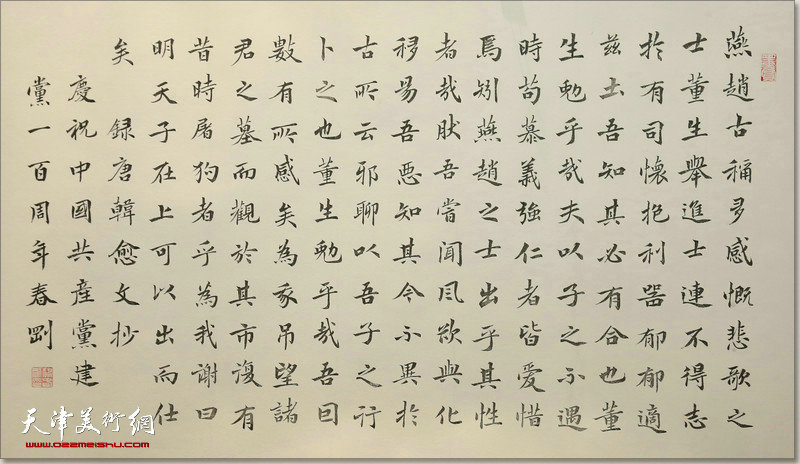 燕趙古稱多感慨悲歌之
士董生舉進士連不得志
於有司懷抱利器郁郁適
茲土吾知其必有合也董
生勉乎哉夫以子之不遇
時苟慕義強仁者皆愛惜
焉矧燕趙之士出乎其性
者哉然吾嘗聞風俗與化
移易吾惡知其今不異於
古所云邪聊以吾子之行
卜之也董生勉乎哉吾因
數有所感矣為我吊望諸
君之墓而觀於其市復有
昔時屠狗者乎為我謝曰
明天子在上可以出而仕
矣 錄唐韓愈文抄
慶祝中國共產黨建
黨一百周年春剛
天津美術網
www.022meishu.com